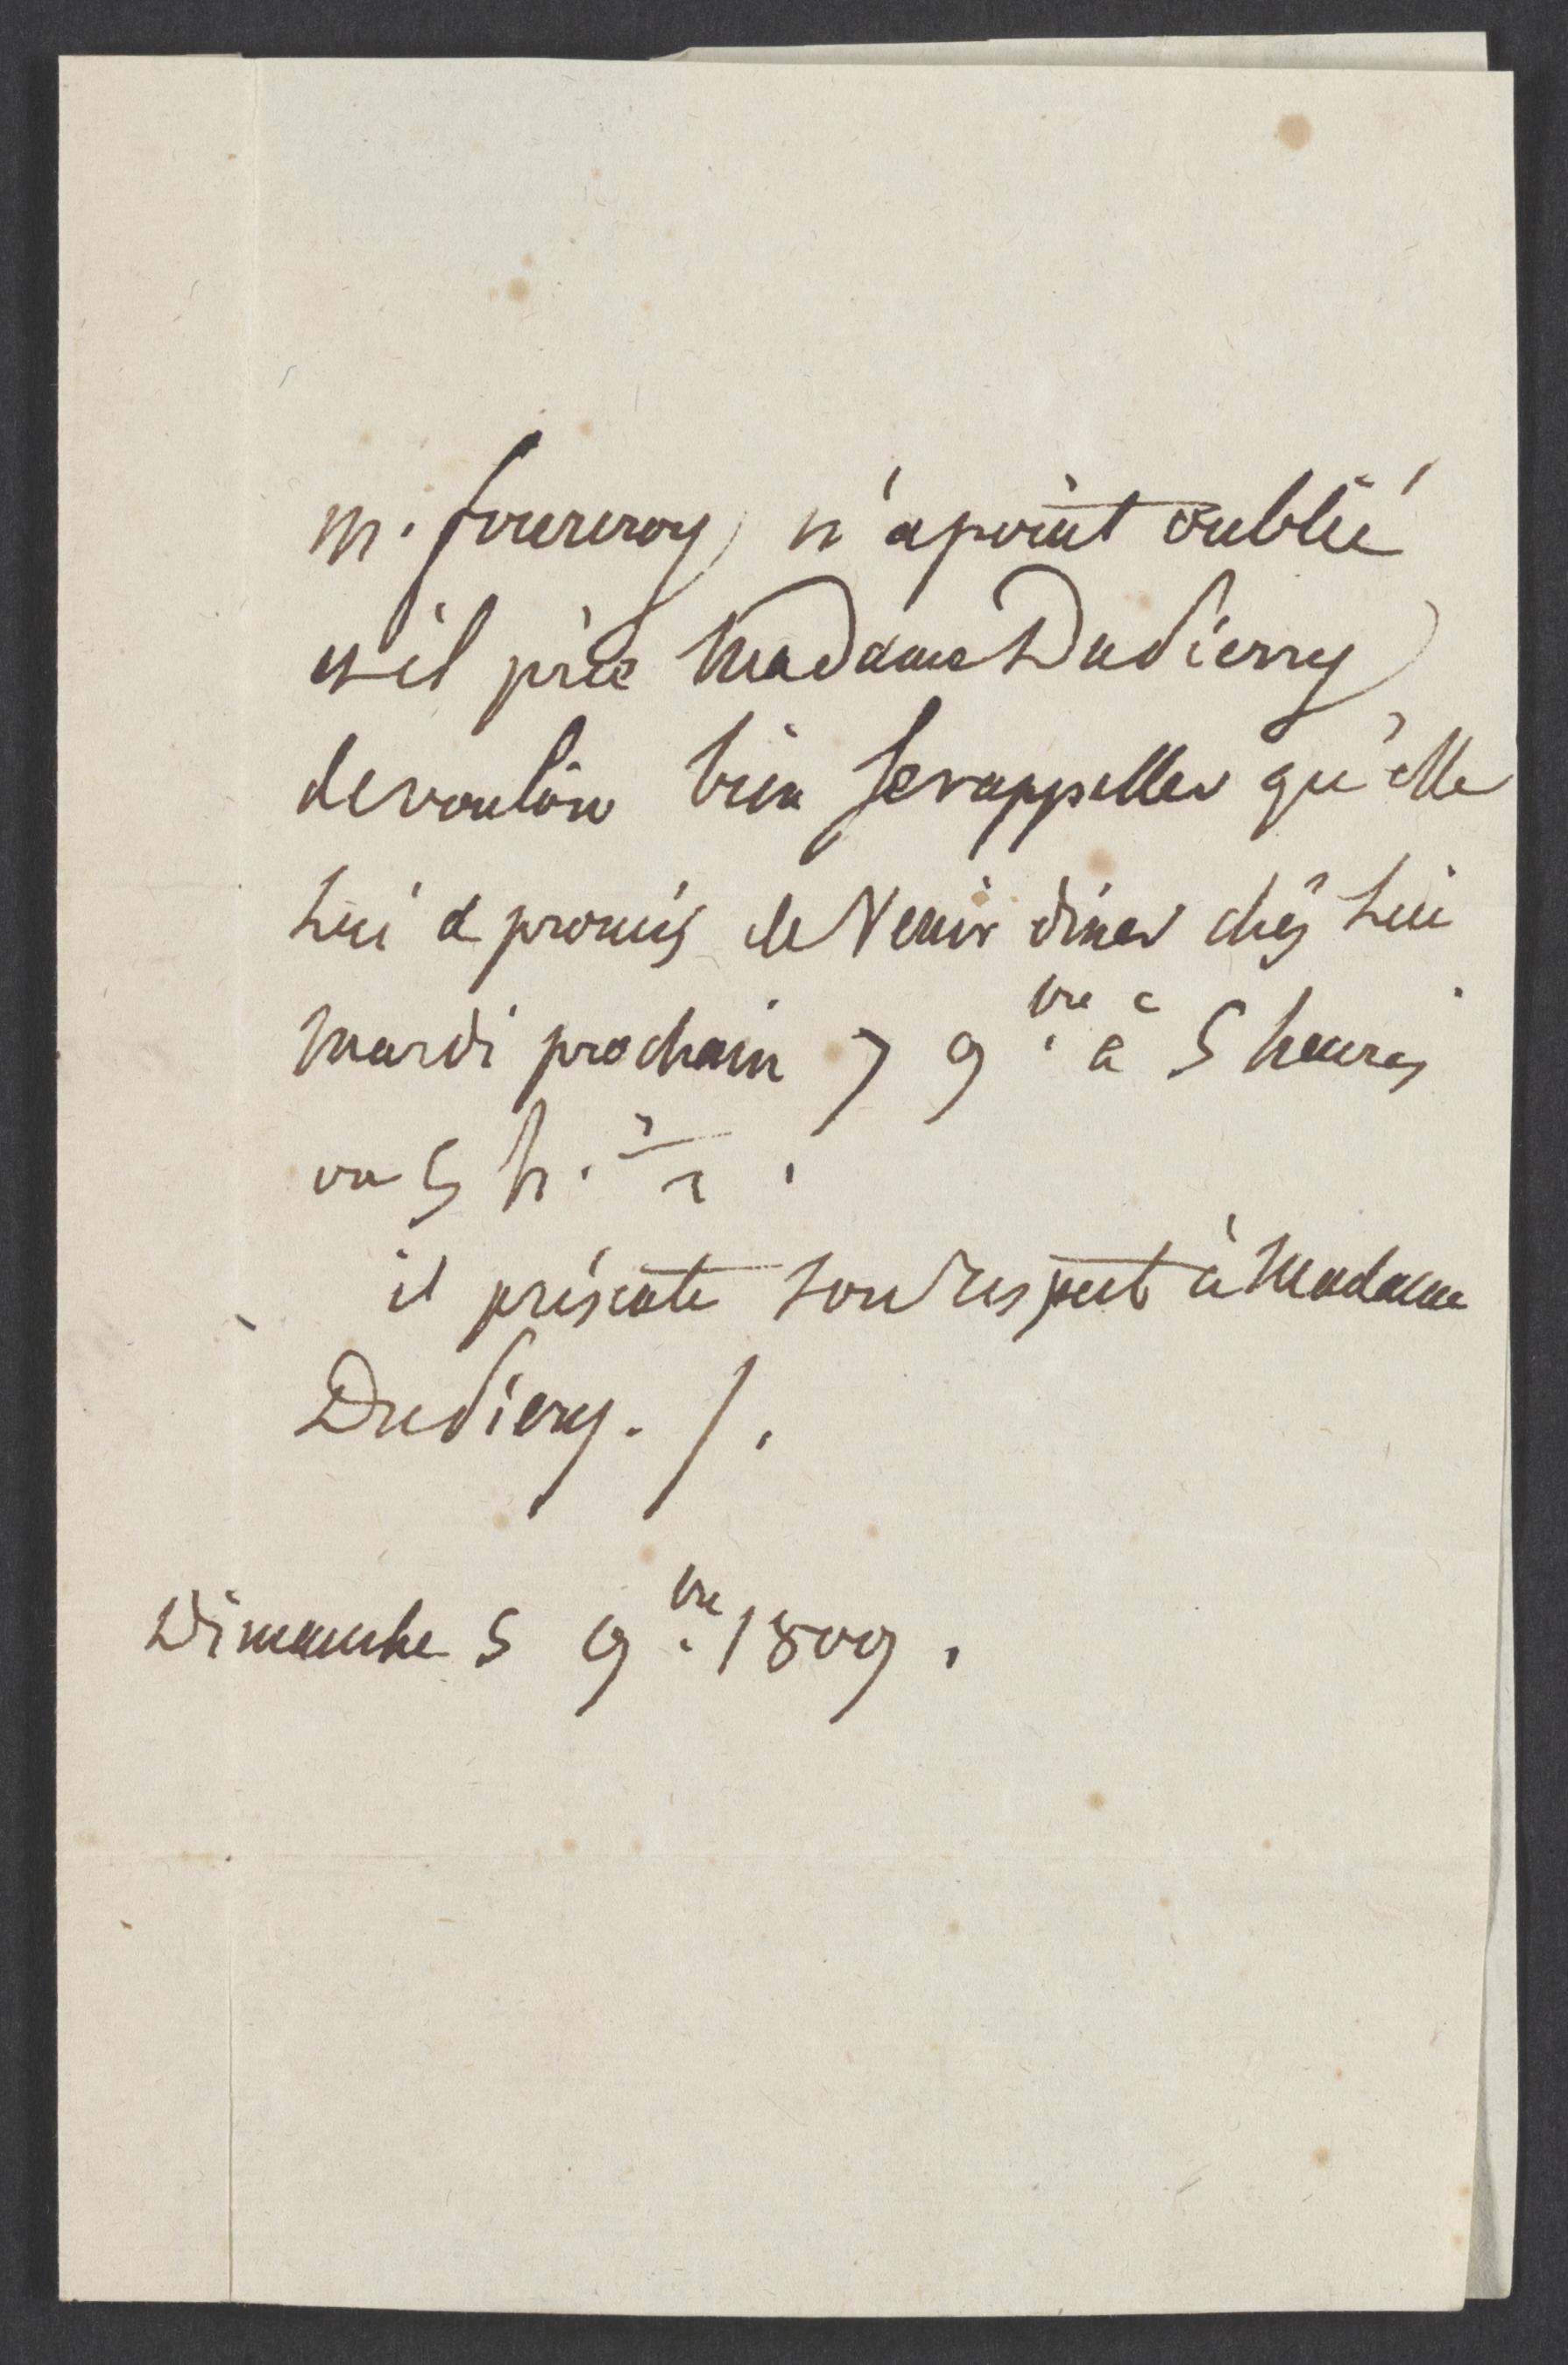 m. fourcroy n'a point oublié
et il prie Madame Dudierry
de vouloir bien se rappeller qu'elle
lui a promis de venir diner chés lui
mardi prochain 7 9bre. à 5 heures
ou 5 h. 1/2.
il présente son respect à Madame
Dudiery. /.
Dimanche 5 9bre. 1809.